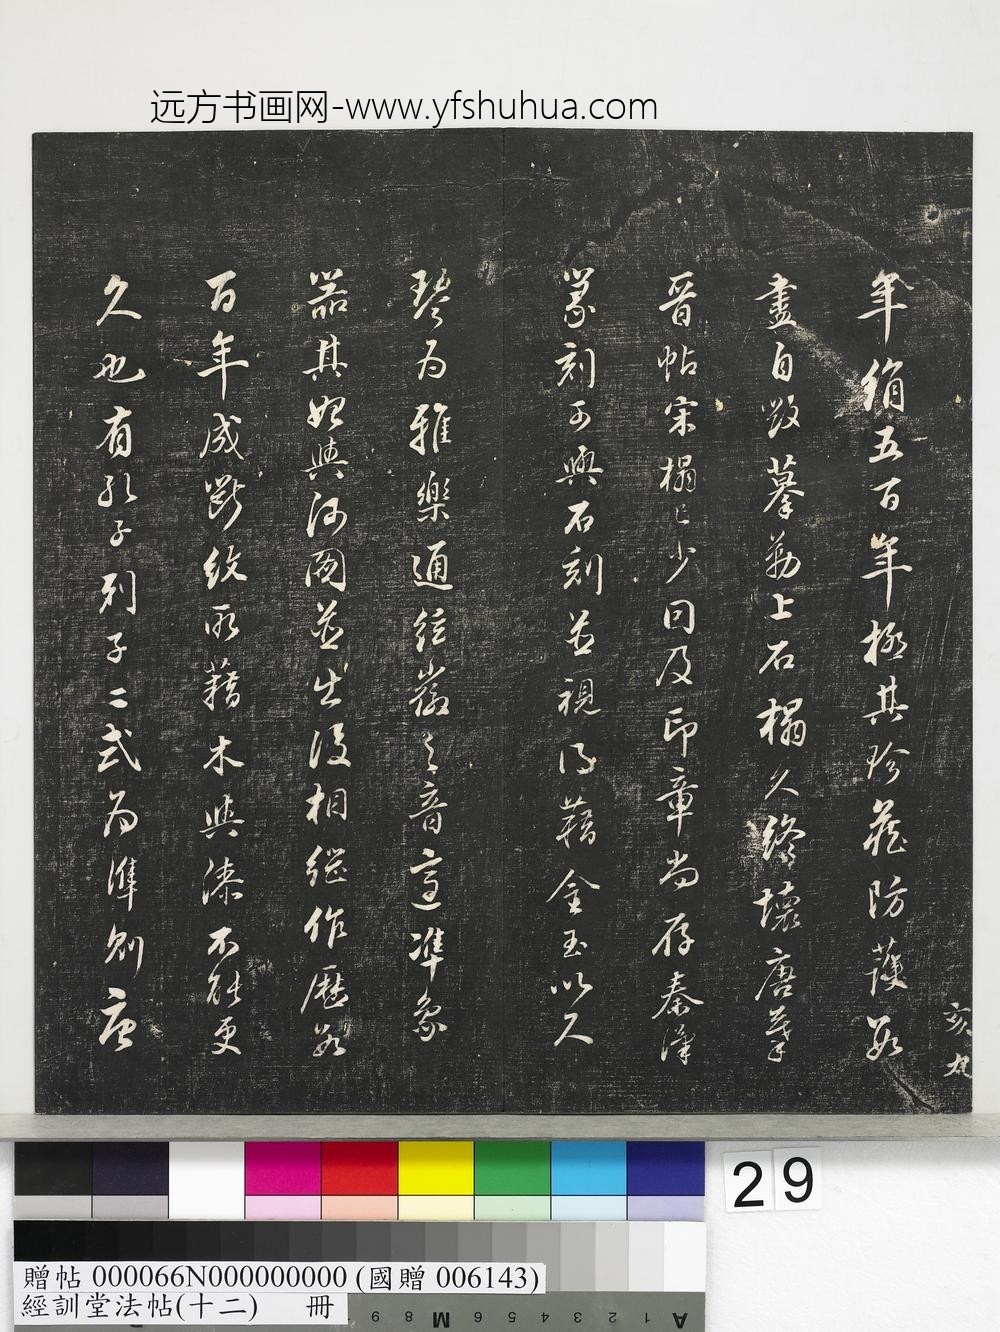 远方书画网-www.yfshuhua.com
年絹五百年極其珍藏防護如
畫自毀摹勒上石榻久終壞唐摹
晉帖宋榻已少同及印章尚存秦漢
篆刻可與石刻並視得藉金玉以久
琴為雅樂通絃徽之音寓準象
器其始與河圖並出後相繼作歷數
百年成斷紋所藉木與漆不能更
久也有孔子列子二式為準則唐
亥
29
贈帖 000066N000000000 (國贈 006143)
經訓堂法帖(十二) 冊
9 8 M 6 5 4 3 2 1 A